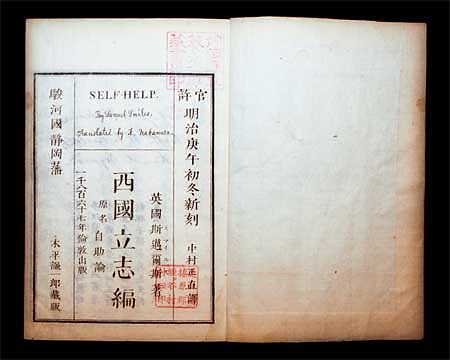 官許
明治庚午初冬新刻
中村正直譯
英國斯邁爾斯著
SELF-HELP.
By Samuel Smiles.
Translated by Nakamura.
西國立志編
原名 自助論
一千八百六十七年倫敦出版
駿河國静岡藩
木平謙一郎藏版